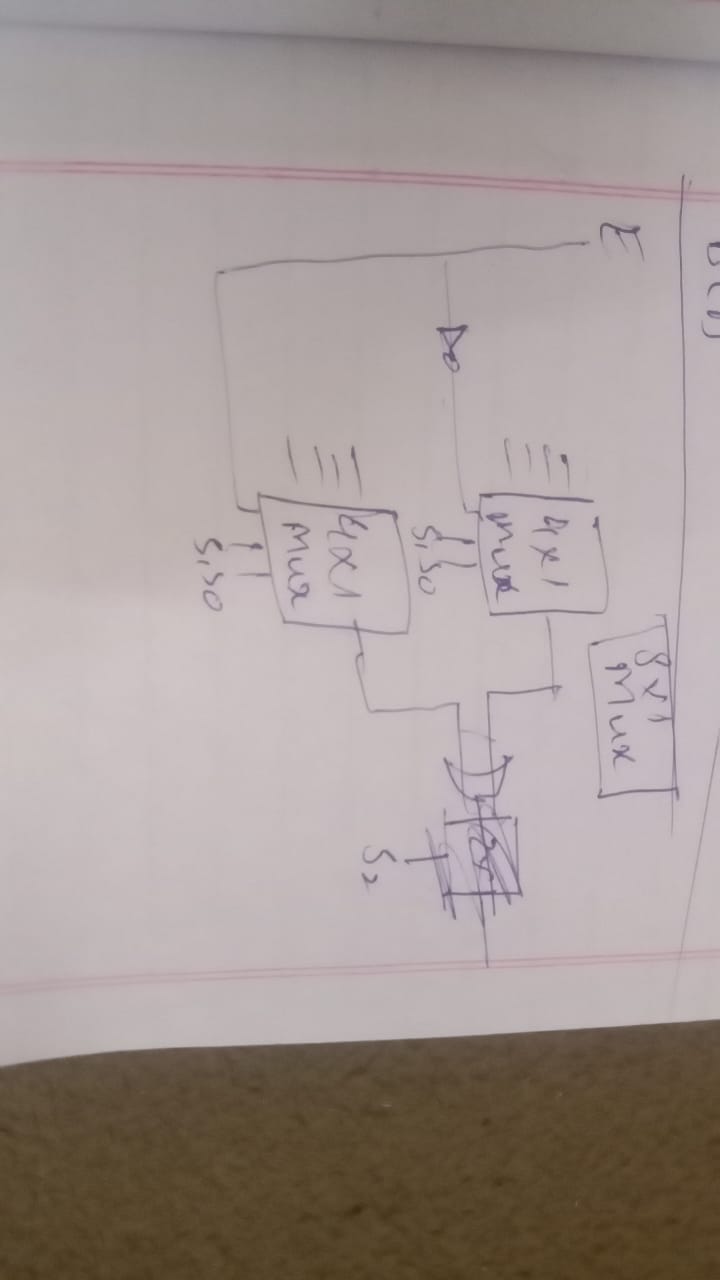 E
8x1
Mux
4x1
Mux
S1S0
4x1
Mux
S1S0
S2